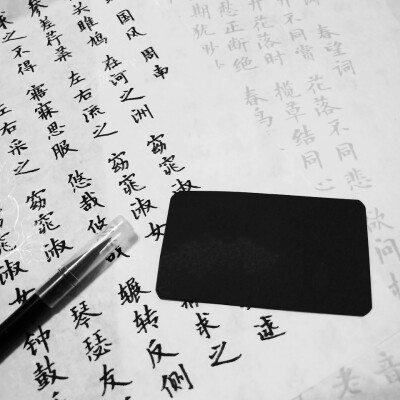 国风 周南
关雎鸠 在河之洲 窈窕淑 逑
参差荇菜 左右流之 窈窕淑女 求之
求之不得 寤寐思服 悠哉悠哉 辗转反侧
左右采之 窈窕淑女 琴瑟友
窕淑女 钟鼓
春望词
不同赏 花落不同悲 欲问
花落时 揽草结同心
愁正断绝 春鸟
期犹
音
老